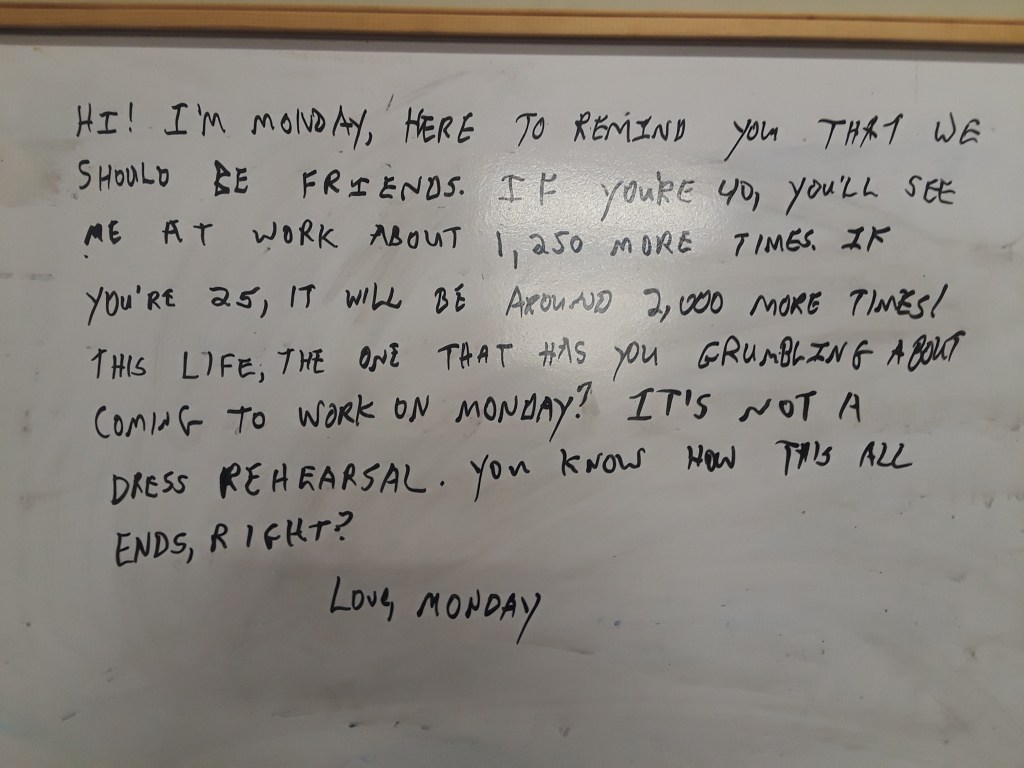 HI! I'M MONDAY, HERE TO REMIND YOU THAT WE
SHOULD BE FRIENDS. IF YOU'RE 40, YOU'LL SEE
ME AT WORK ABOUT 1,250 MORE TIMES. IF
YOU'RE 25, IT WILL BE AROUND 2,000 MORE TIMES!
THIS LIFE, THE ONE THAT HAS YOU GRUMBLING ABOUT
COMING TO WORK ON MONDAY? IT'S NOT A
DRESS REHEARSAL. YOU KNOW HOW THIS ALL
ENDS, RIGHT?
LOVE, MONDAY